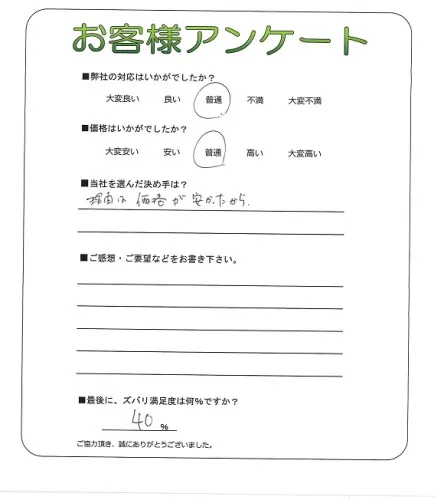 お客様アンケート
■弊社の対応はいかがでしたか?
大変良い 良い 普通 不満 大変不満
■価格はいかがでしたか?
大変安い 安い 普通 高い 大変高い
■当社を選んだ決め手は?
理由は価格が安かたから.
■ご感想・ご要望などをお書き下さい。
■最後に、ズバリ満足度は何%ですか?
40 %
ご協力頂き、誠にありがとうございました。